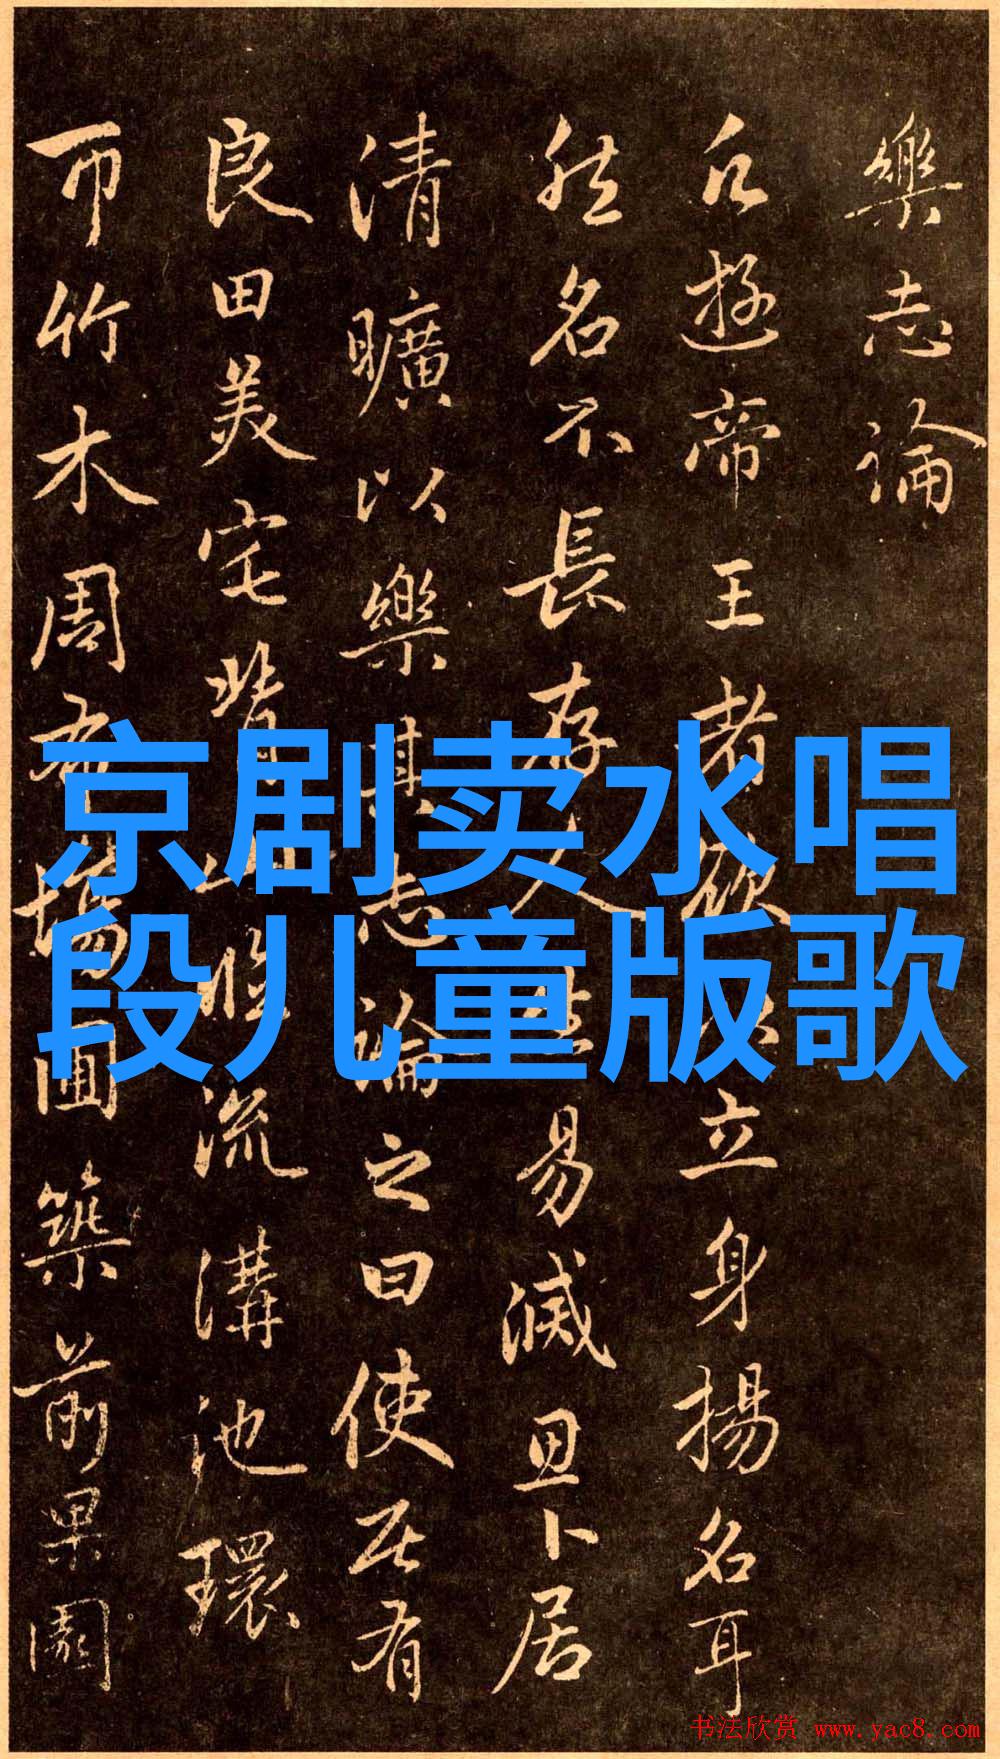 樂志論
凡遊帝王者欲以立身揚名耳
然名不長存人生易滅思卜居
清曠以樂其志論之曰使居有
良田美宅背山臨流溝池環
帀竹木周布場圃築前果園
京剧卖水唱
段儿童版歌
书法欣赏 www.yac8.com